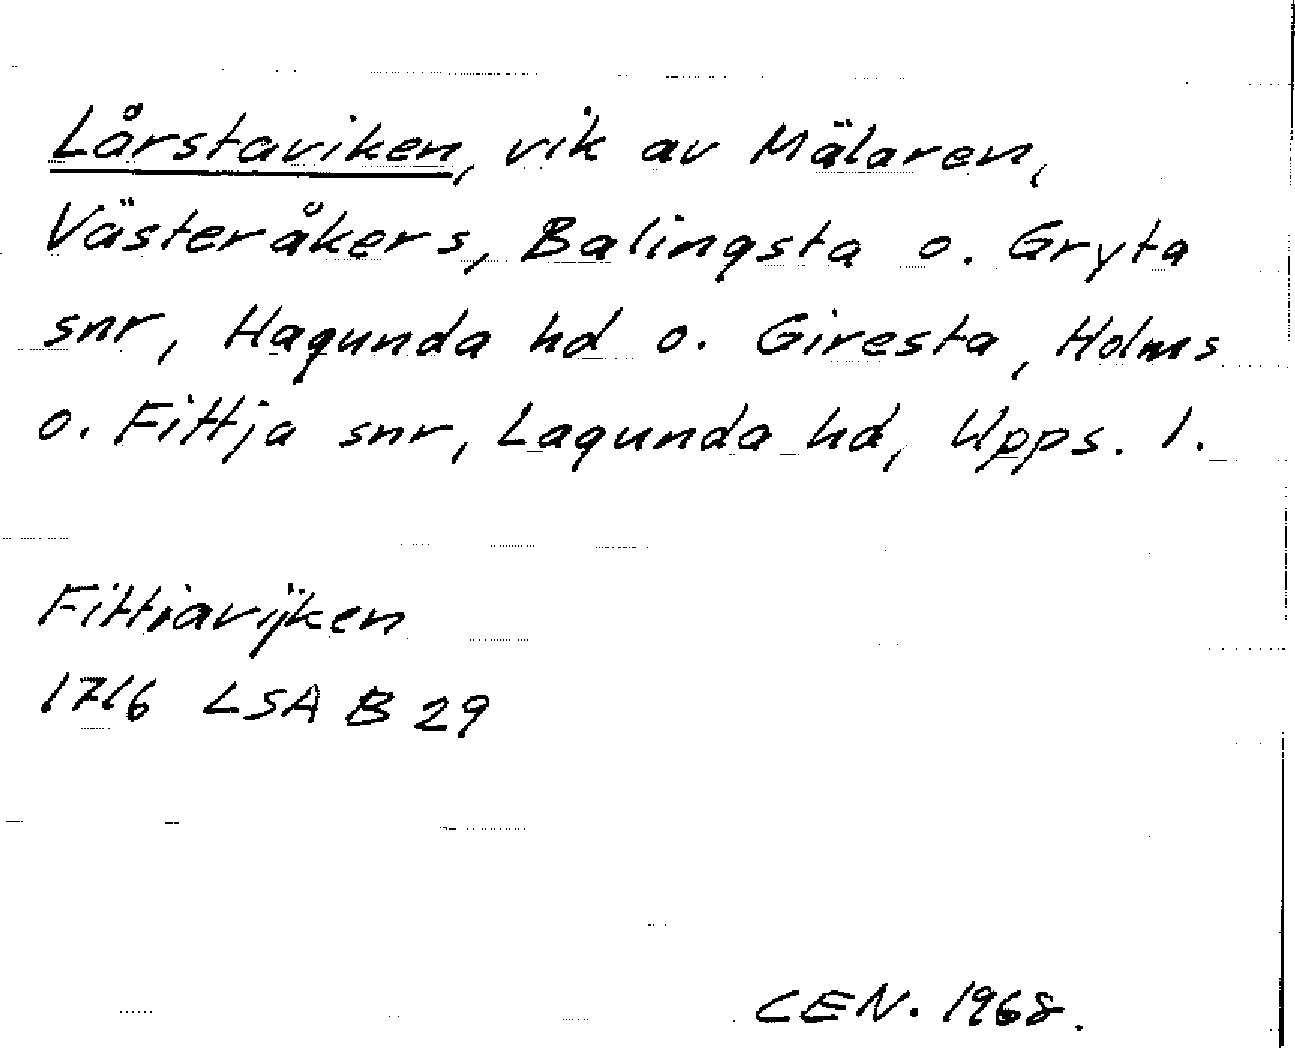 Lårstaviken, vik av Mälaren,
Västeråkers, Balingsta o. Gryta
snr, Hagunda hd o. Giresta, Holms
o. Fittja snr, Lagunda hd, Upps. l.
Fittiavijken
1716 LSA B 29
CEN. 1968.